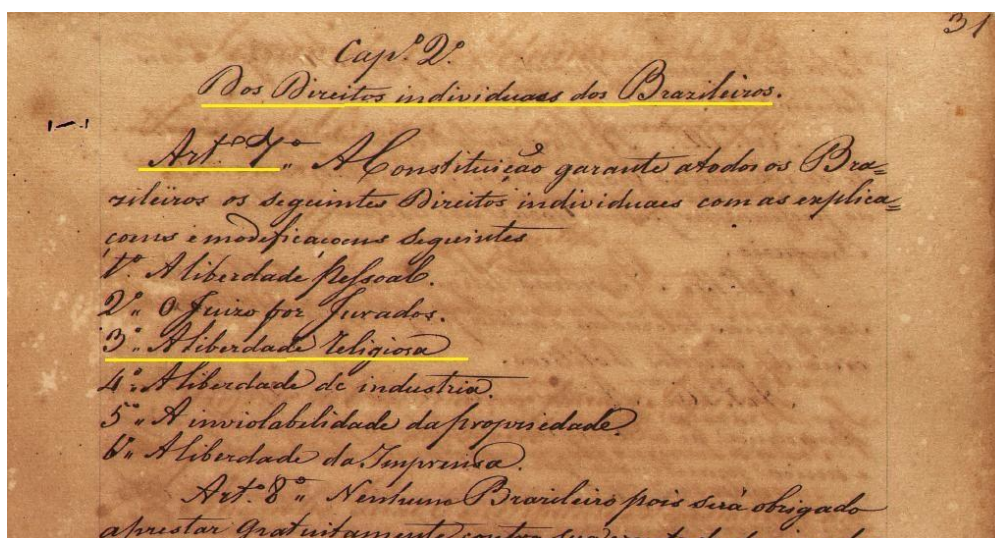 31
Cap.º 2.º
Dos Direitos individuaes dos Brazileiros.
Art.º 7º " A Constituição garante atodos os Bra=
zileiros os seguintes Direitos individuaes com as explica=
çoens e modificaçoens seguintes
1.º A liberdade pessoal.
2º " O Juizo por Jurados.
3º " A liberdade religiosa
4º " A liberdade de industria.
5º " A inviolabilidade da propriedade.
6º " A liberdade da Imprensa.
Art.º 8º " Nenhum Brazileiro pois será obrigado
aprestar gratuitamente contra sua